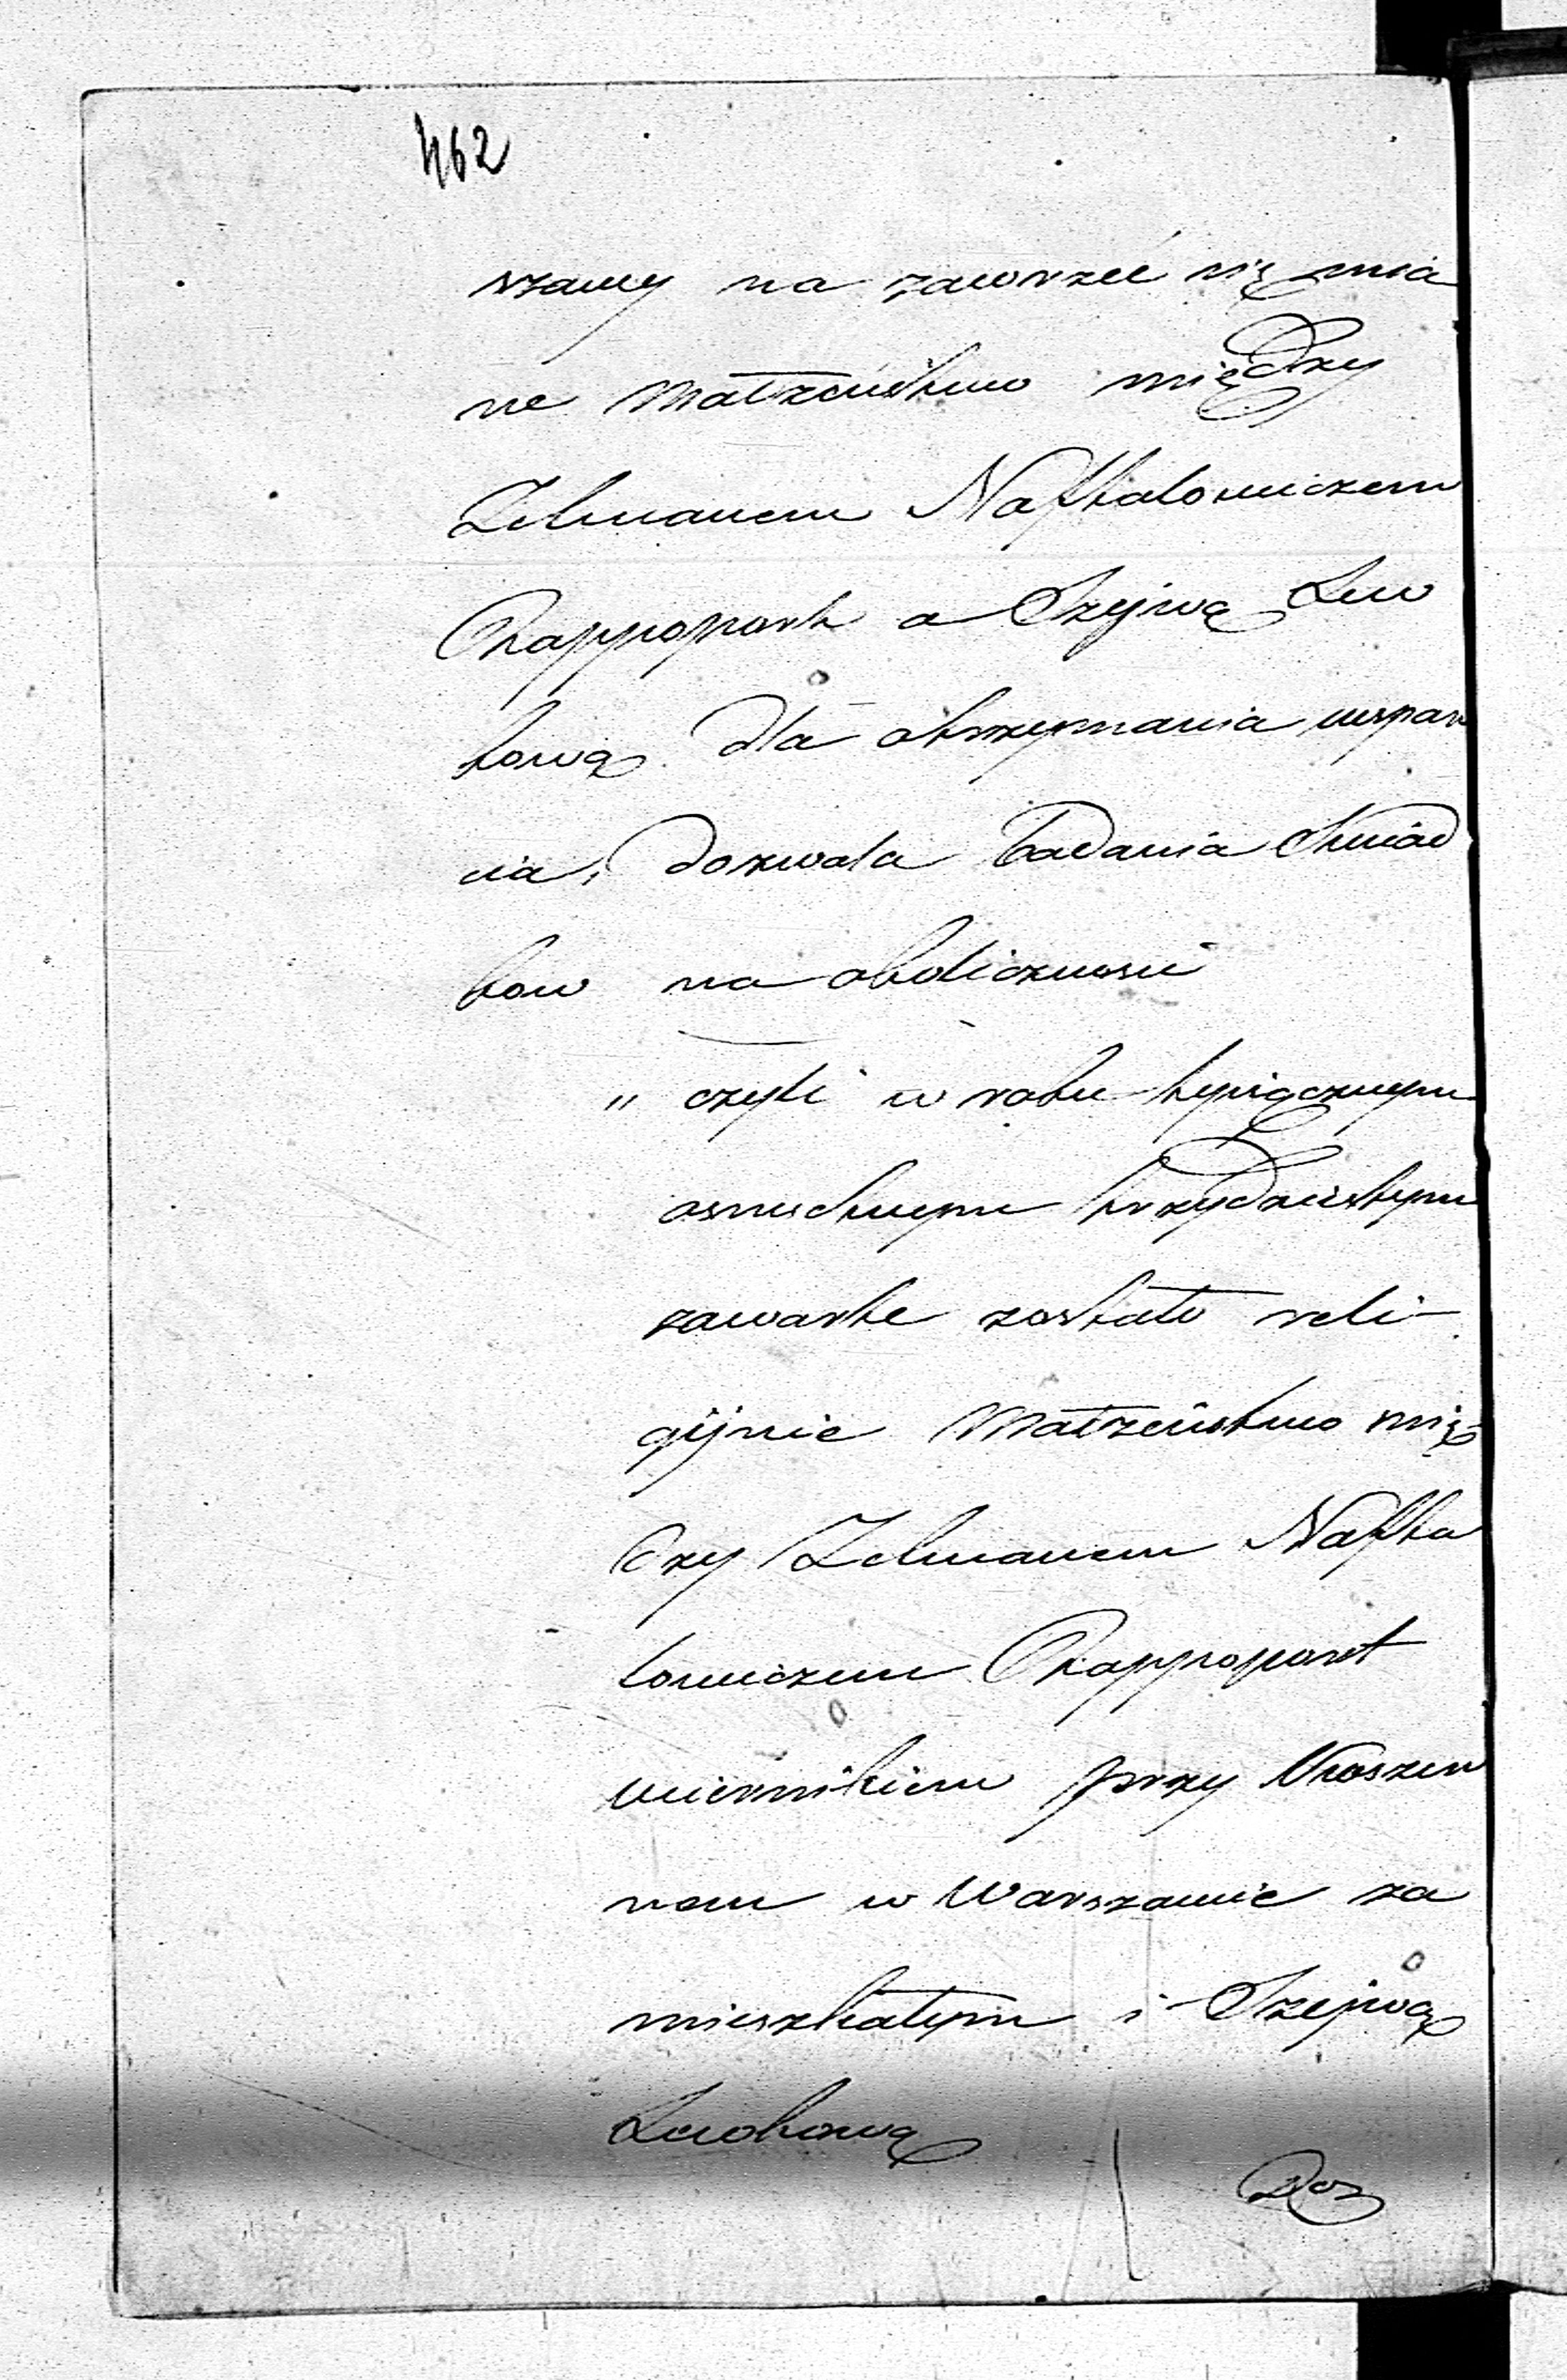 462
szawy na zawrzeć się mia
ne Małżeństwo między
Zelmanem Naftalowiczem
Rappoport a Szejwą Lew
kową dla otrzymania wspar
cia, dozwala badania Świad
kow na okoliczność
" czyli w roku tysiącznym
osmsetnym trzydziestym
zawarte zostało reli-
gijnie Małżeństwo mię-
dzy Zelmanem Nafta
lowiczem Rappoport
Miernikiem przy
w Warszawie za
mieszkałym i Szejwą
Lewkową
Doz